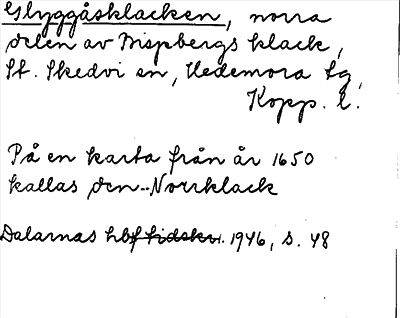 Glyggåsklacken, norra
delen av Bispbergs klack,
St. Skedvi sn, Hedemora tg,
Kopp. l.
På en karta från år 1650
kallas den "Norrklack
Dalarnas hbf tidskr. 1946, s. 48